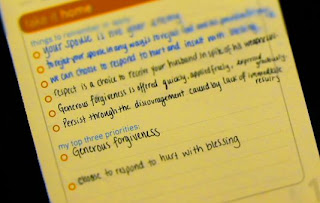 take it home
things to remember in
your spouse is not your enemy
To reject your spouse in any way is to reject God and his
We can choose to respond to hurt and insult with blessing
respect is a choice to receive your husband in spite of his weaknesses.
Generous forgiveness is offered quickly, applied freely, and graciously
Persist through the discouragement caused by lack of immediate
results
my top three priorities:
Generous forgiveness
Choose to respond to hurt with blessing